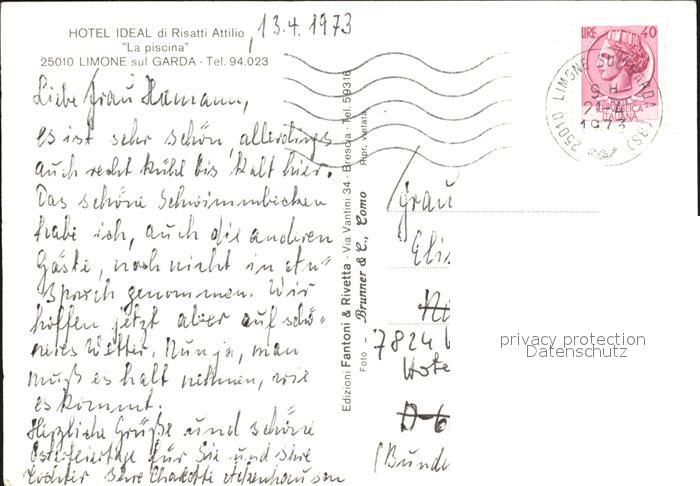 HOTEL IDEAL di Risatti Attilio
"La piscina"
25010 LIMONE sul GARDA - Tel. 94.023
13.4.1973
Liebe Frau Hamann,
es ist sehr schön, allerdings
auch recht kühl bis kalt hier.
Das schöne Schwimmbecken
habe ich, auch die anderen
Gäste, noch nicht in An"
Spruch genommen. Wir
hoffen jetzt aber auf schö"
neres Wetter. Nun ja, man
muß es halt nehmen, wie
es kommt.
Herzliche Grüße und schöne
Osterfeiertage für Sie und Ihre
Tochter Ihre Charlotte
Edizioni Fantoni & Rivetta - Via Vantini 34 - Brescia - Tel. 59316
Foto Brunner & C., Como Ripr. vietata
LIRE 40
REPUBBLICA
ITALIANA
25010 LIMONE SUL GARDA (BS)
21-4
1973
Frau
Elis
7824
Hote
(Bunde
privacy protection
Datenschutz